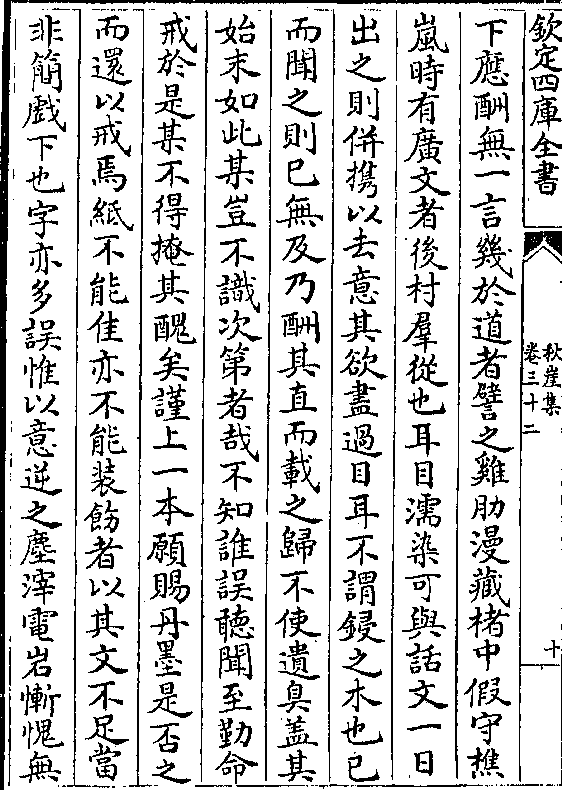 欽定四庫全書
秋崖集
卷三十二
十
下應酬無一言幾於道者譬之雞肋漫藏楮中假守樵
嵐時有廣文者後村羣從也耳目濡染可與話文一日
出之則併携以去意其欲盡過目耳不謂鋟之木也已
而聞之則已無及乃酬其直而載之歸不使遺臭盖其
始末如此某豈不識次第者哉不知誰誤聴聞至勤命
戒於是某不得掩其醜矣謹上一本願賜丹墨是否之
而還以戒焉紙不能佳亦不能装飭者以其文不足當
非簡戯下也字亦多誤惟以意逆之塵滓電岩慚愧無